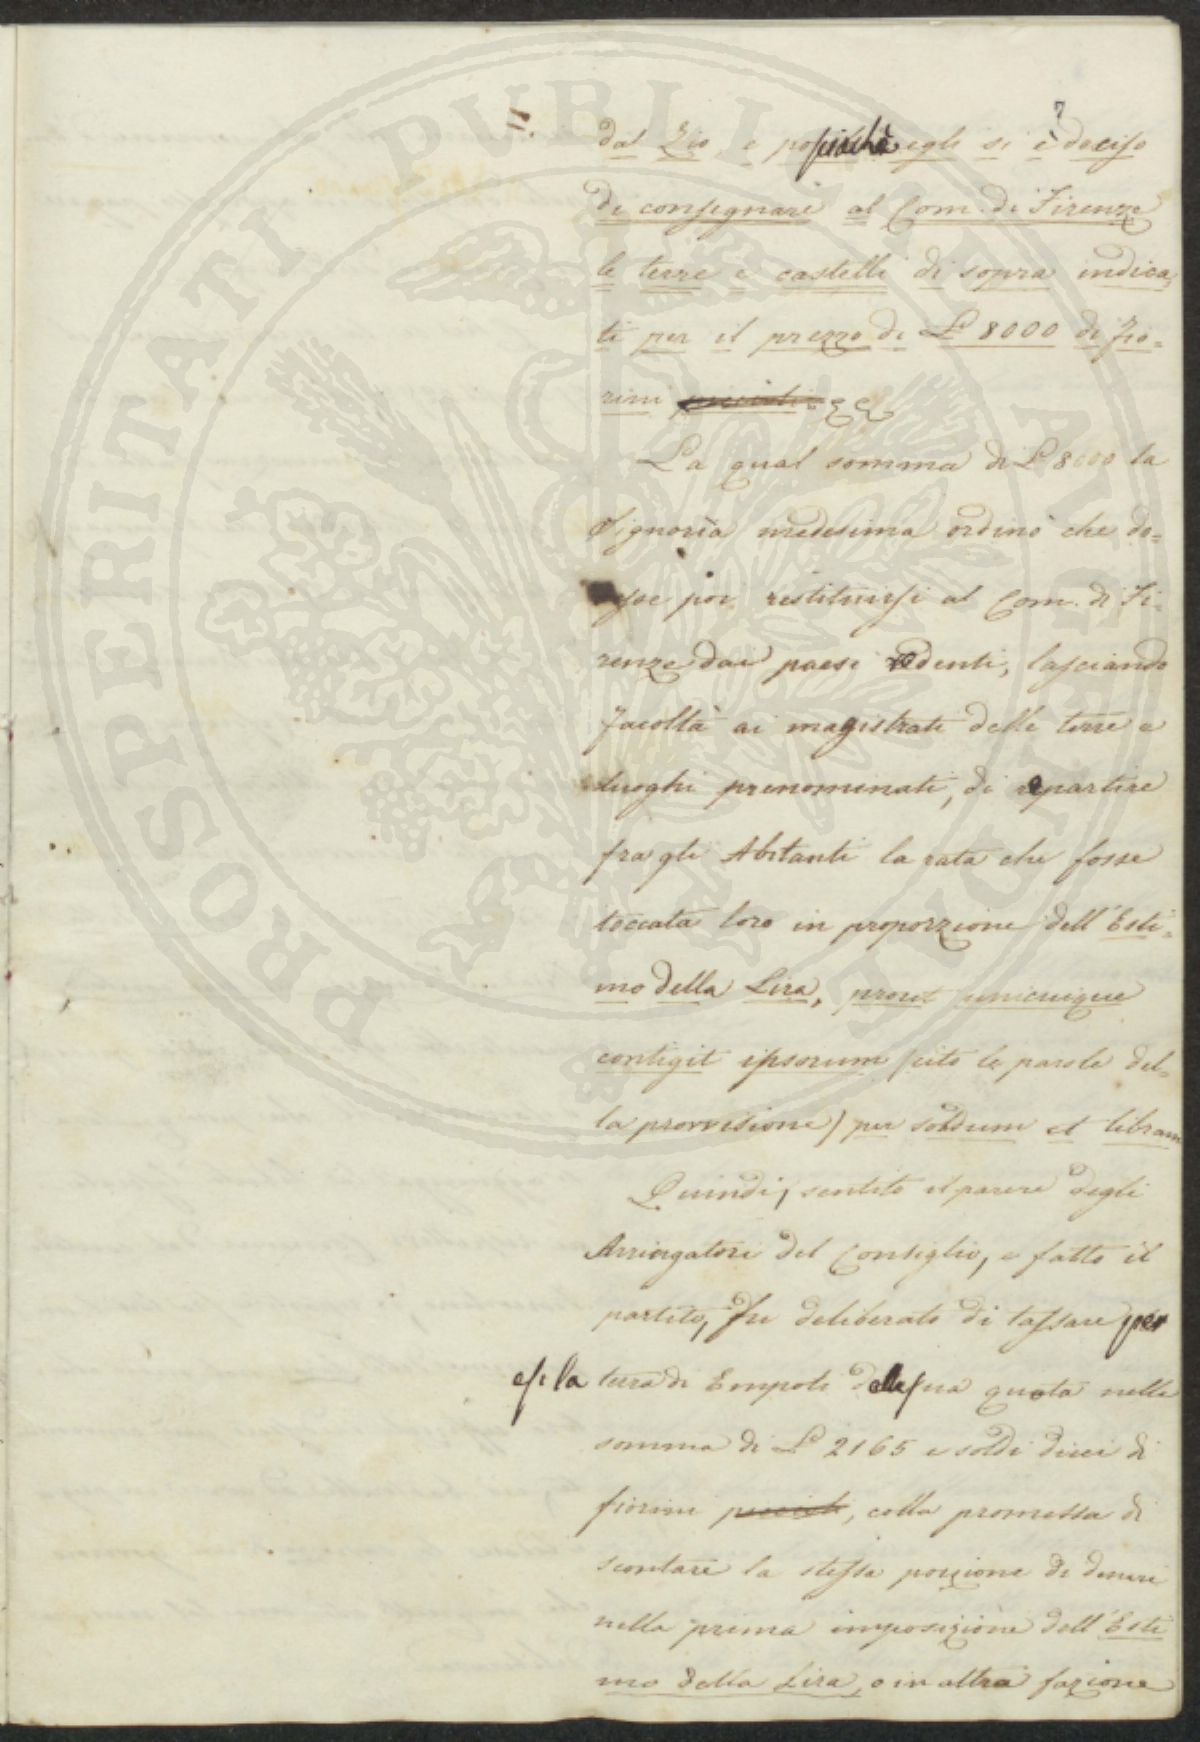 II.
dal Zio, e poschachè egli si è deciso
di consegnare al Com. di Firenze
le terre e castelli di sopra indica-
ti per il prezzo di £ 8000 di fio-
rini piccioli
La qual somma di £ 8000 la
Signoria medesima ordinò che do-
vesse poi restituirsi al Com. di Fi-
renze dai paesi redenti, lasciando
facoltà ai magistrati delle terre e
luoghi prenominati, di repartire
fra gli Abitanti la rata che fosse
toccata loro in proporzione dell'Esti-
mo della Lira, prout unicuique
contigit ipsorum (cito le parole del-
la provvisione) per soldum et libram
Quindi, sentito il parere degli
Arringatori del Consiglio, e fatto il
partito, fu deliberato di tassare per
essi la terra di Empoli della sua quota nella
somma di £ 2165 e soldi dieci di
fiorini piccioli, colla promessa di
scontare la stessa porzione di denari
nella prima imposizione dell'Esti
mo della Lira, o in altra fazione
PROSPERITATI PUBLICAE AUGENDAE